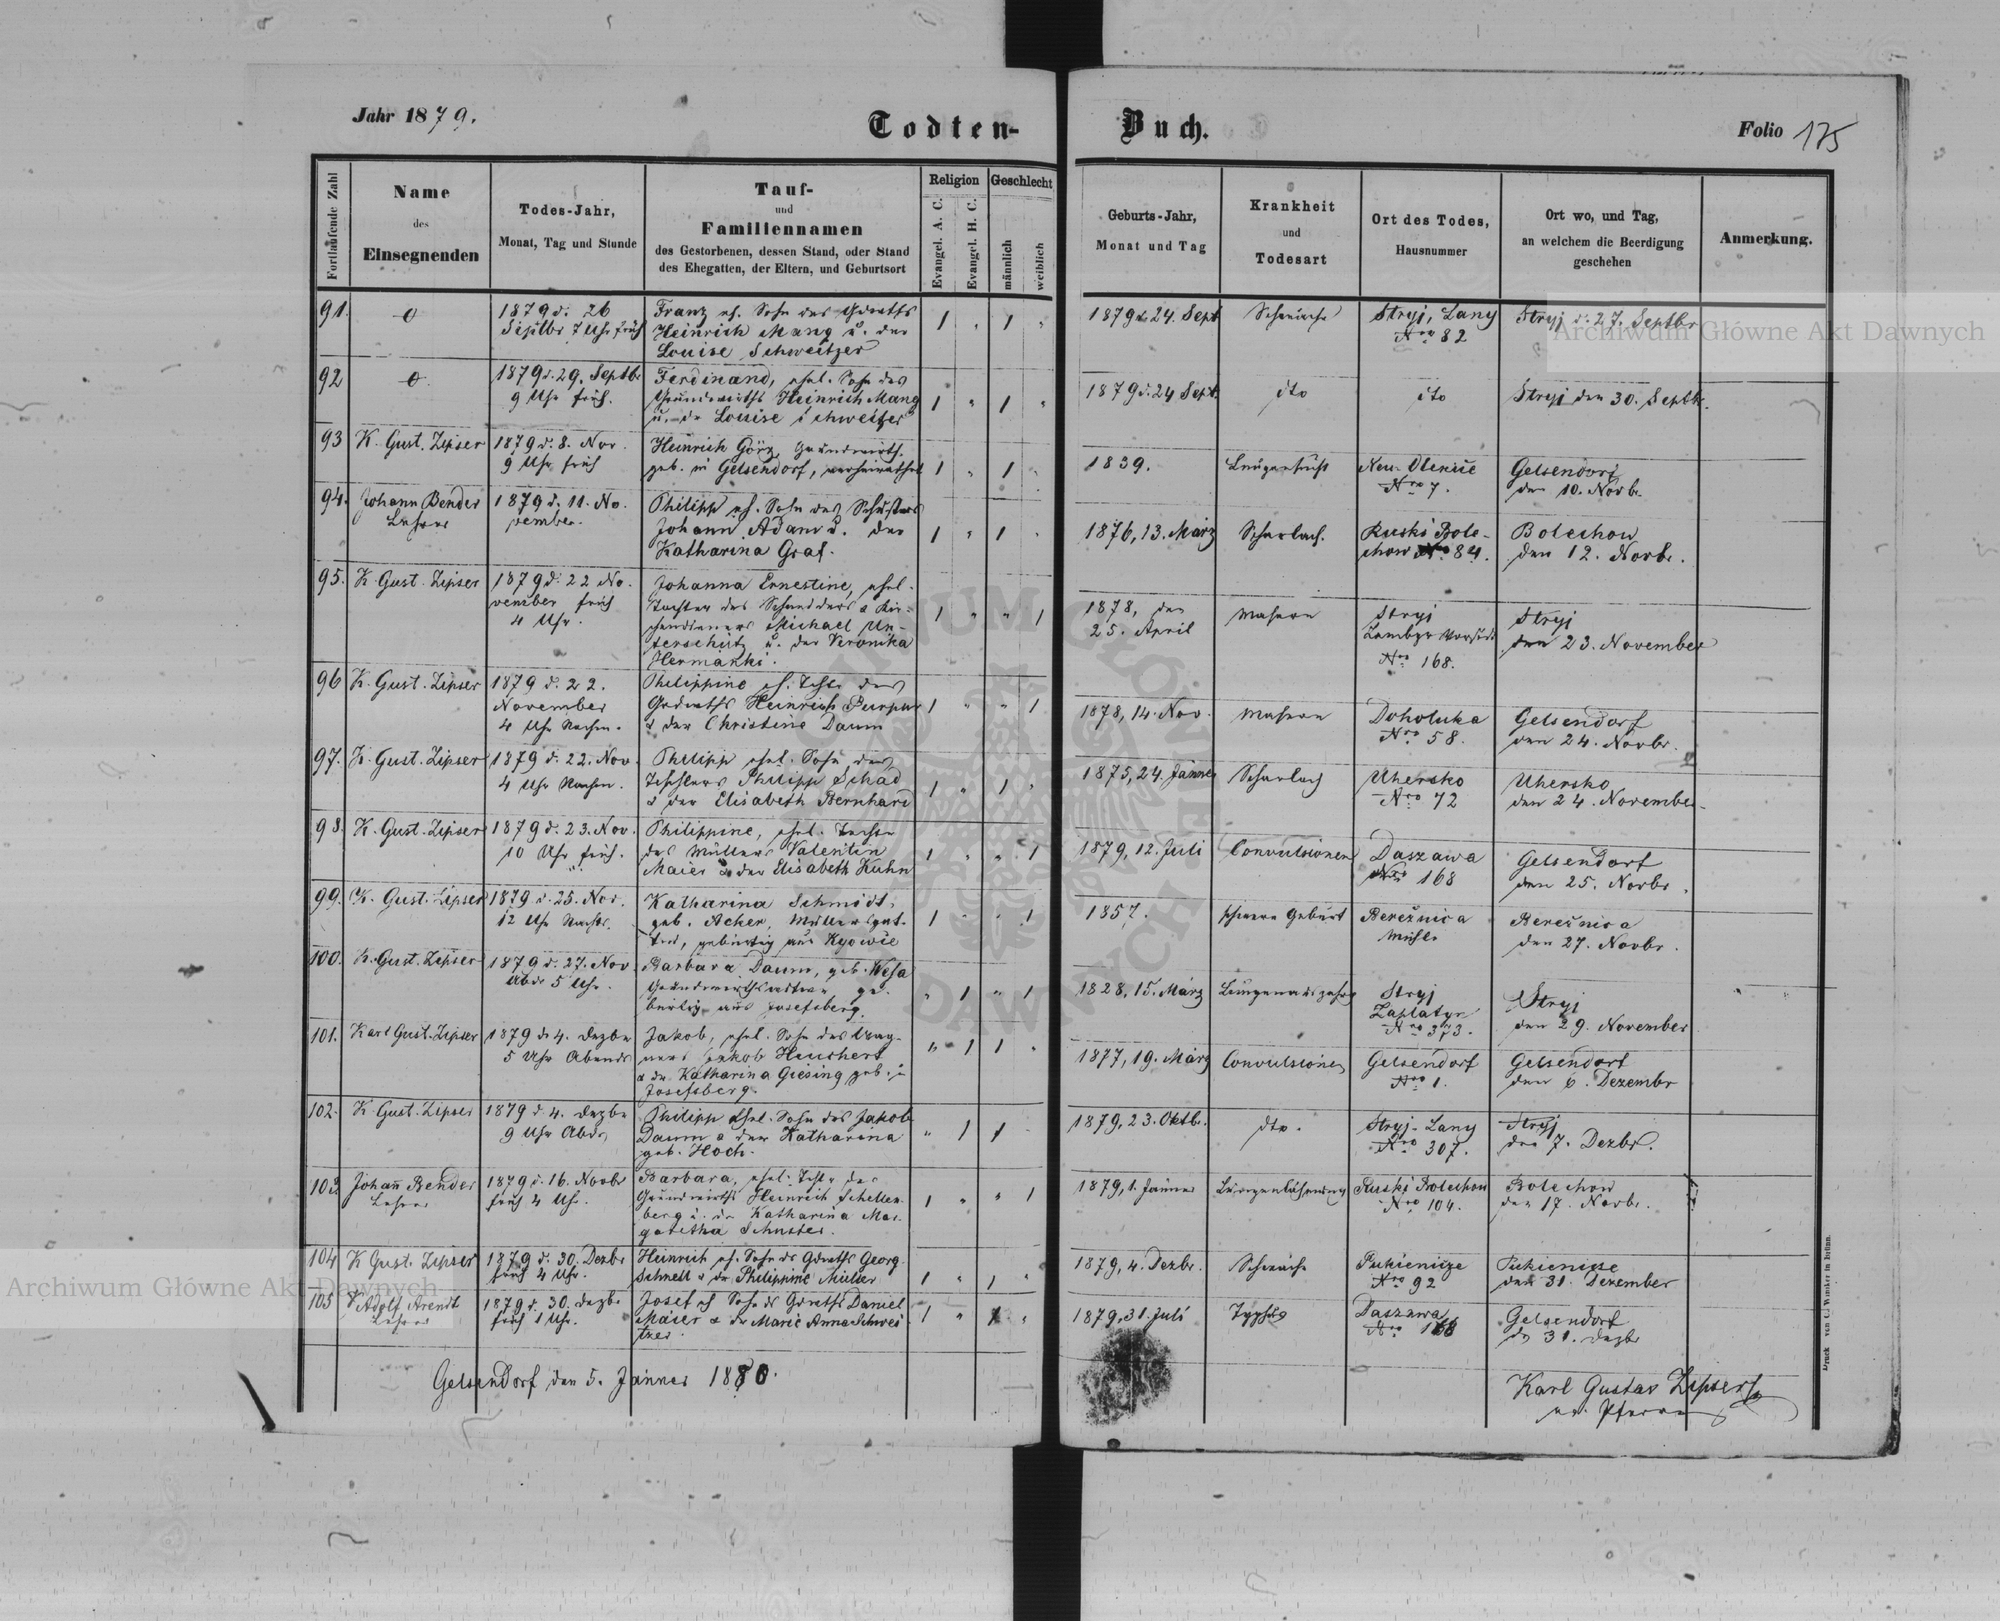 Jahr 1879.
Todten-
Buch.
Folio 175
Fortlaufende Zahl
Name
des
Einsegnenden
Todes-Jahr,
Monat, Tag und Stunde
Tauf-
und
Familiennamen
des Gestorbenen, dessen Stand, oder Stand
des Ehegatten, der Eltern, und Geburtsort
Religion
Evangel. A. C.
Evangel. H. C.
Geschlecht
männlich
weiblich
Geburts-Jahr,
Monat und Tag
Krankheit
und
Todesart
Ort des Todes,
Hausnummer
Ort wo, und Tag,
an welchem die Beerdigung
geschehen
Anmerkung.
91.
1879 d. 26
Septbr 7 Uhr früh
Franz eh. Sohn des Gdwirths
Heinrich Mang u. der
Louise Schweitzer
1 " 1 "
1879 d. 24. Sept
Schwäche
Stryj, Lany
Nro 82
Stryj d. 27. Septbr
92
1879 d. 29. Septbr
9 Uhr früh.
Ferdinand, ehel. Sohn des
Grundwirths Heinrich Mang
u. der Louise Schweitzer
1 " 1 "
1879 d. 24 Sept.
dto
dto
Stryj den 30. Septbr.
93
K. Gust. Zipser
1879 d. 8. Nov.
9 Uhr früh
Heinrich Görz, Grundwirth,
geb. in Gelsendorf, verheirathet
1 " 1 "
1839.
Lungensucht
Neu-Olexice
Nro 7.
Gelsendorf
den 10. Novb.
94.
Johann Bender
Lehrer
1879 d. 11. No-
vember.
Philipp eh. Sohn des Schusters
Johann Adam u. der
Katharina Graf.
1 " 1 "
1876, 13. März
Scharlach.
Ruski Bole-
chow Nro 84.
Bolechow
den 12. Novb.
95.
K. Gust. Zipser
1879 d. 22 No-
vember früh
4 Uhr.
Johanna Ernestine, ehel.
Tochter des Schneiders & Kir-
chendieners Michael Un-
terschütz u. der Veronika
Hermanki.
1 " " 1
1878, den
25. April
Masern
Stryj
Lemberger Vorstadt
Nro 168.
Stryj
den 23. November
96
K. Gust. Zipser
1879 d. 22.
November
4 Uhr Nachm.
Philippine eh. Tocht. des
Gdwirths Heinrich Purpur
& der Christine Daum
1 " " 1
1878, 14. Nov.
Masern
Doholuka
Nro 58.
Gelsendorf
den 24. Novbr.
97.
K. Gust. Zipser
1879 d. 22. Nov.
4 Uhr Nachm.
Philipp ehel. Sohn des
Tischlers Philipp Schäd
& der Elisabeth Bernhard
1 " 1 "
1875, 24. Jänner
Scharlach
Uhersko
Nro 72
Uhersko
den 24. November
98.
K. Gust. Zipser
1879 d. 23. Nov.
10 Uhr früh.
Philippine, ehel. Tochter
des Müllers Valentin
Maier & der Elisabeth Kuhn
1 " " 1
1879, 12. Juli
Convulsionen
Daszawa
Nro 168
Gelsendorf
den 25. Novbr.
99.
K. Gust. Zipser
1879 d. 25. Nov.
12 Uhr Nachts.
Katharina Schmidt,
geb. Acher, Müllersgat-
tin, gebürtig aus
1 " " 1
1857.
schwere Geburt
Berežnica
Mühle
Berežnica
den 27. Novbr.
100.
K. Gust. Zipser
1879 d. 27. Nov
Abds 5 Uhr.
Barbara Daum, geb.
Grundwirthswitwe, ge-
bürtig aus Josefsberg.
" 1 " 1
1828, 15. März
Stryj
Zaplatyn
Nro 373.
Stryj
den 29. November
101.
Karl Gust. Zipser
1879 d. 4. Dezbr
5 Uhr Abends
Jakob, ehel. Sohn des Wag-
ners Jakob Heuchert
& der Katharina Giesing geb. in
Josefsberg.
" 1 1 "
1877, 19. März
Convulsionen
Gelsendorf
Nro 1.
Gelsendorf
den 6. Dezembr
102.
K. Gust. Zipser
1879 d. 4. Dezbr
9 Uhr Abds
Philipp ehel. Sohn des Jakob
Daum & der Katharina
geb. Hoch.
" 1 1 "
1879, 23. Oktb.
dto.
Stryj-Lany
Nro 307.
Stryj
den 7. Dezbr.
103.
Johann Bender
Lehrer
1879 d. 16. Novbr
früh 4 Uhr.
Barbara, ehel. Tocht. des
Grundwirths Heinrich Schellen-
berg u. der Katharina Mar-
garetha Schuster.
1 " " 1
1879, 1. Jänner
Lungenlähmung
Ruski Bolechow
Nro 104.
Bolechow
den 17. Novbr.
104
K Gust. Zipser
1879 d. 30. Dezbr
früh 4 Uhr.
Heinrich eh. Sohn des Gdwirths Georg
Schnell & der Philippine Müller
1 " 1 "
1879, 4. Dezbr.
Schwäche
Pukienicze
Nro 92
Pukienicze
den 31. Dezember
105
Adolf Arendt
Lehrer
1879 d. 30. Dezbr
früh 1 Uhr.
Josef eh Sohn des Gdwirths Daniel
Maier & der Marie Anna Schwei
tzer.
1 " 1 "
1879, 31. Juli
Typhus
Daszawa
Nro 168
Gelsendorf
den 31. Dezbr
Gelsendorf den 5. Jänner 1880.
Karl Gustav Zipser
ev. Pfarrer
Archiwum Główne Akt Dawnych
Archiwum Główne Akt Dawnych